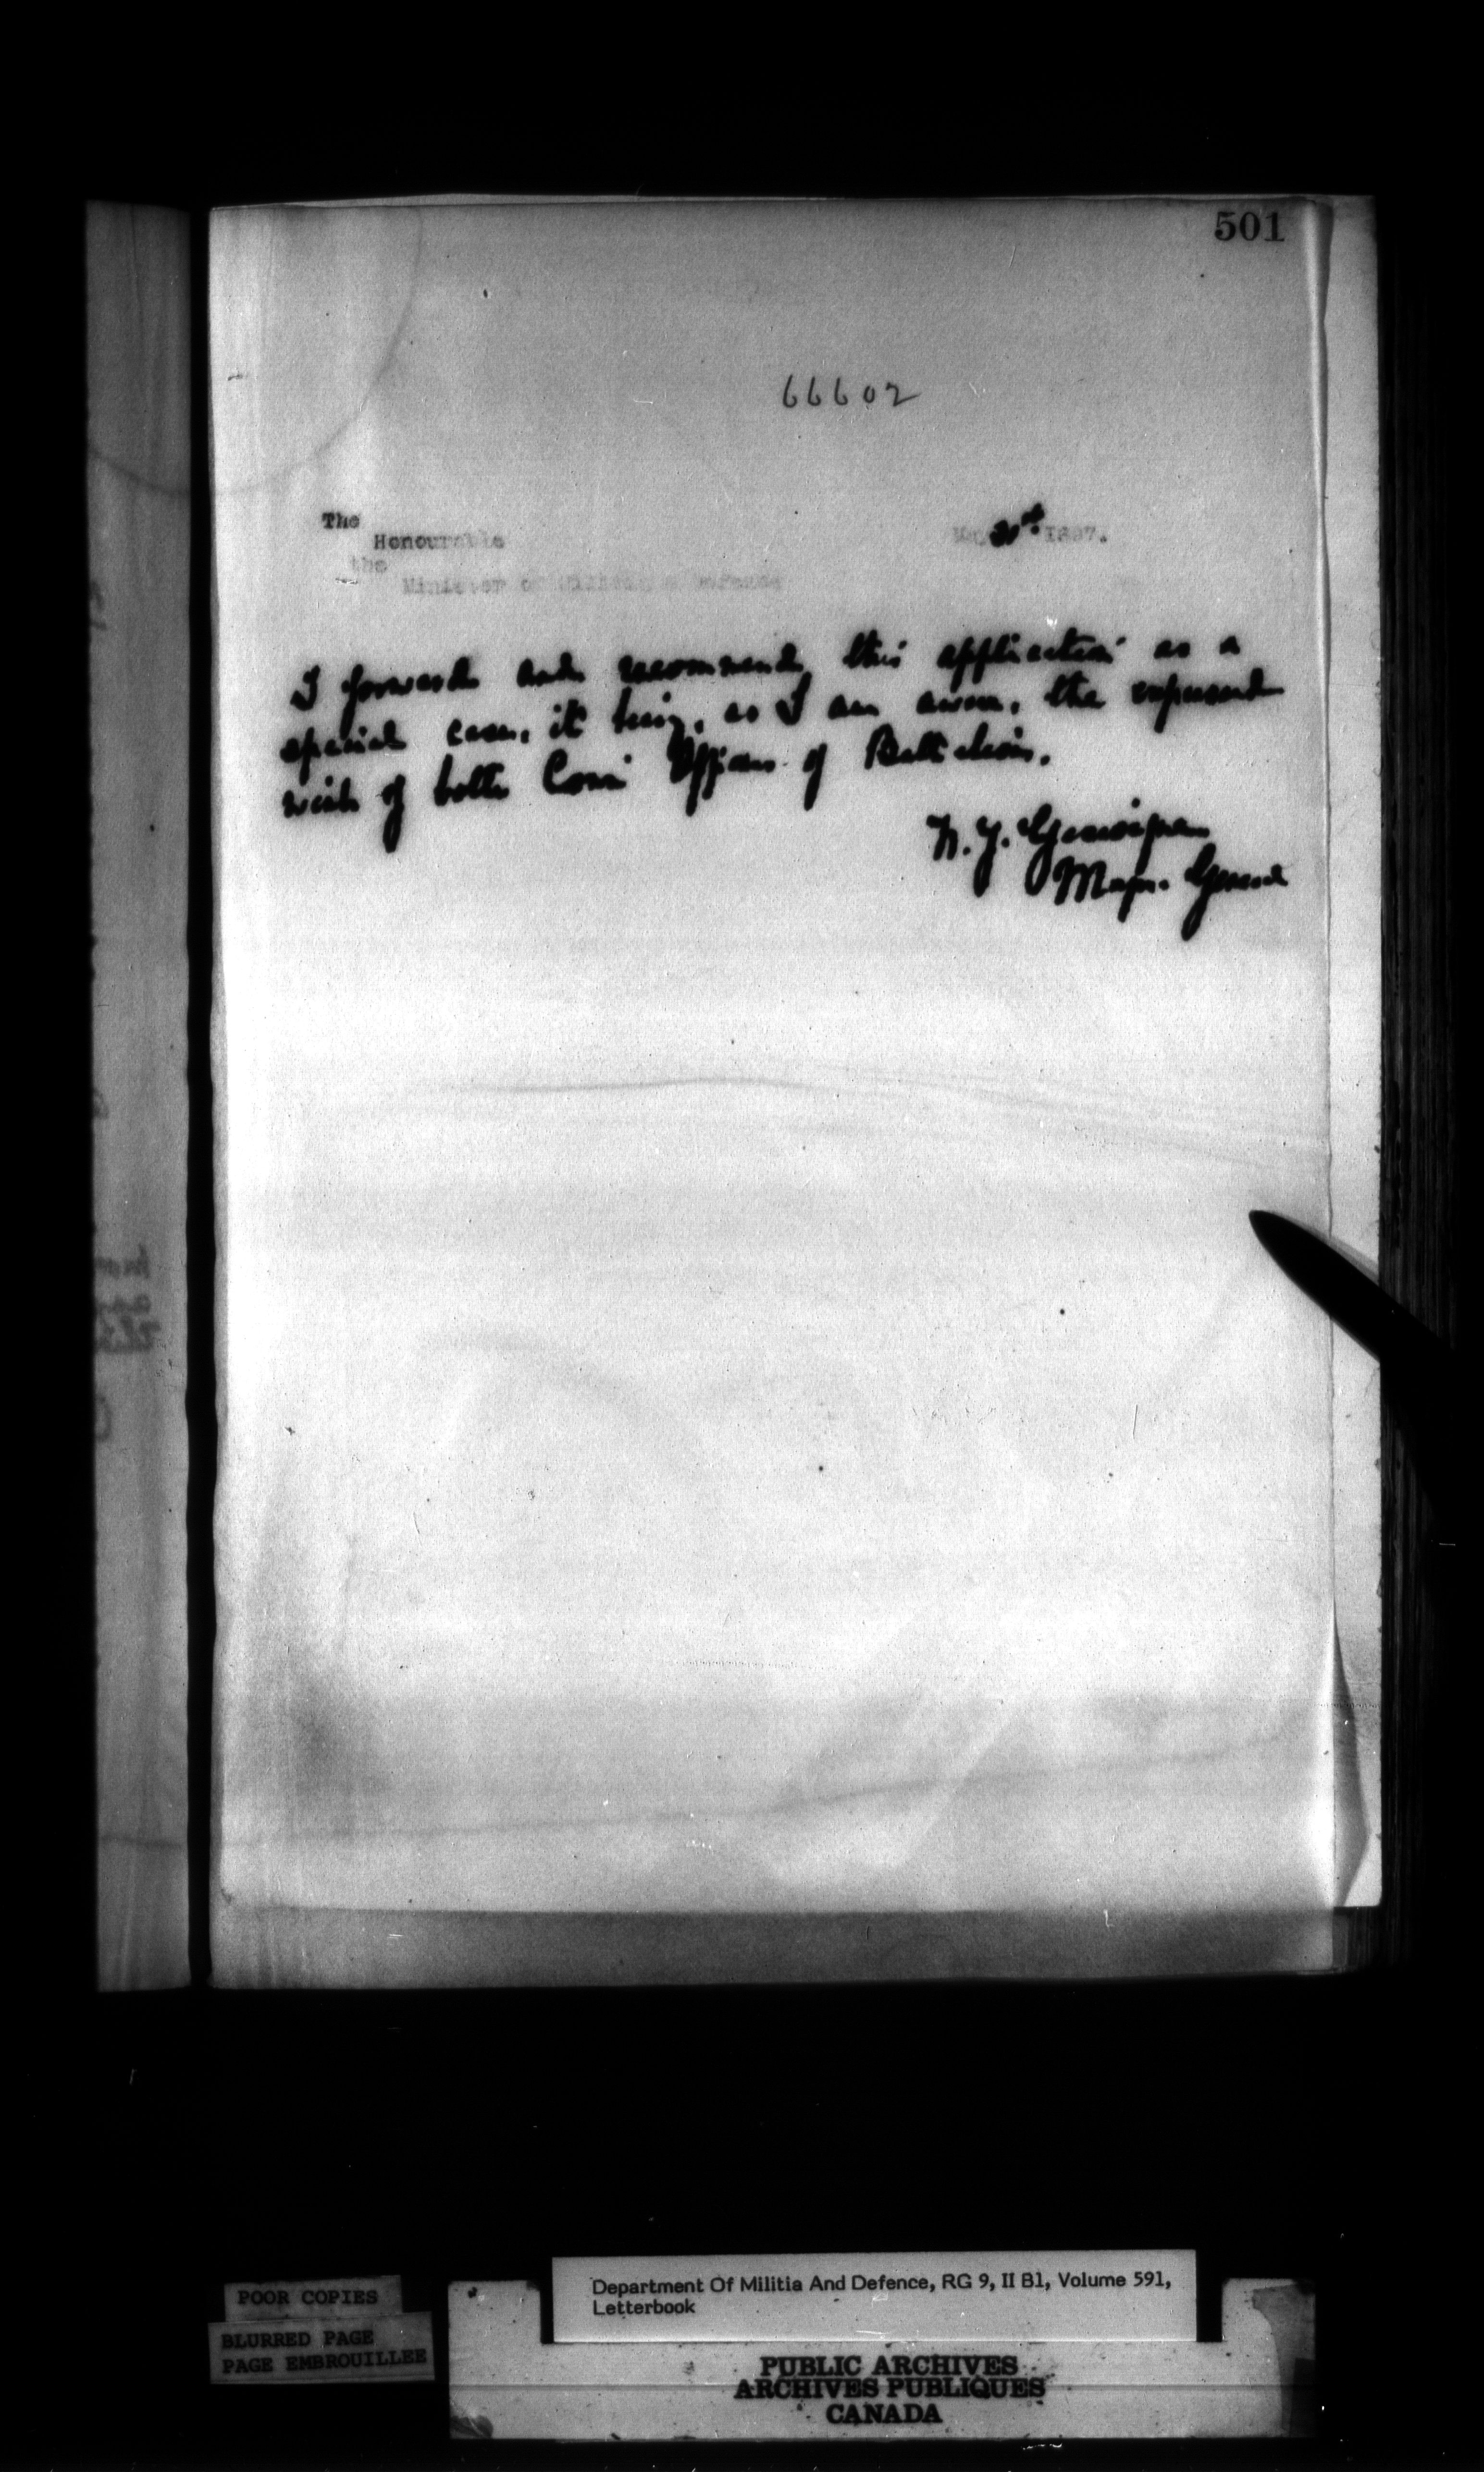 501
66602
The
Honourable
May 1897.
the
Minister of Militia & Defence
I forward and recommend this application as a
special case, it being, as I am aware, the expressed
wish of both Comg Officers of Battalion.
Major. General
POOR COPIES
BLURRED PAGE
PAGE EMBROUILLEE
Department Of Militia And Defence, RG 9, II B1, Volume 591,
Letterbook
PUBLIC ARCHIVES
ARCHIVES PUBLIQUES
CANADA